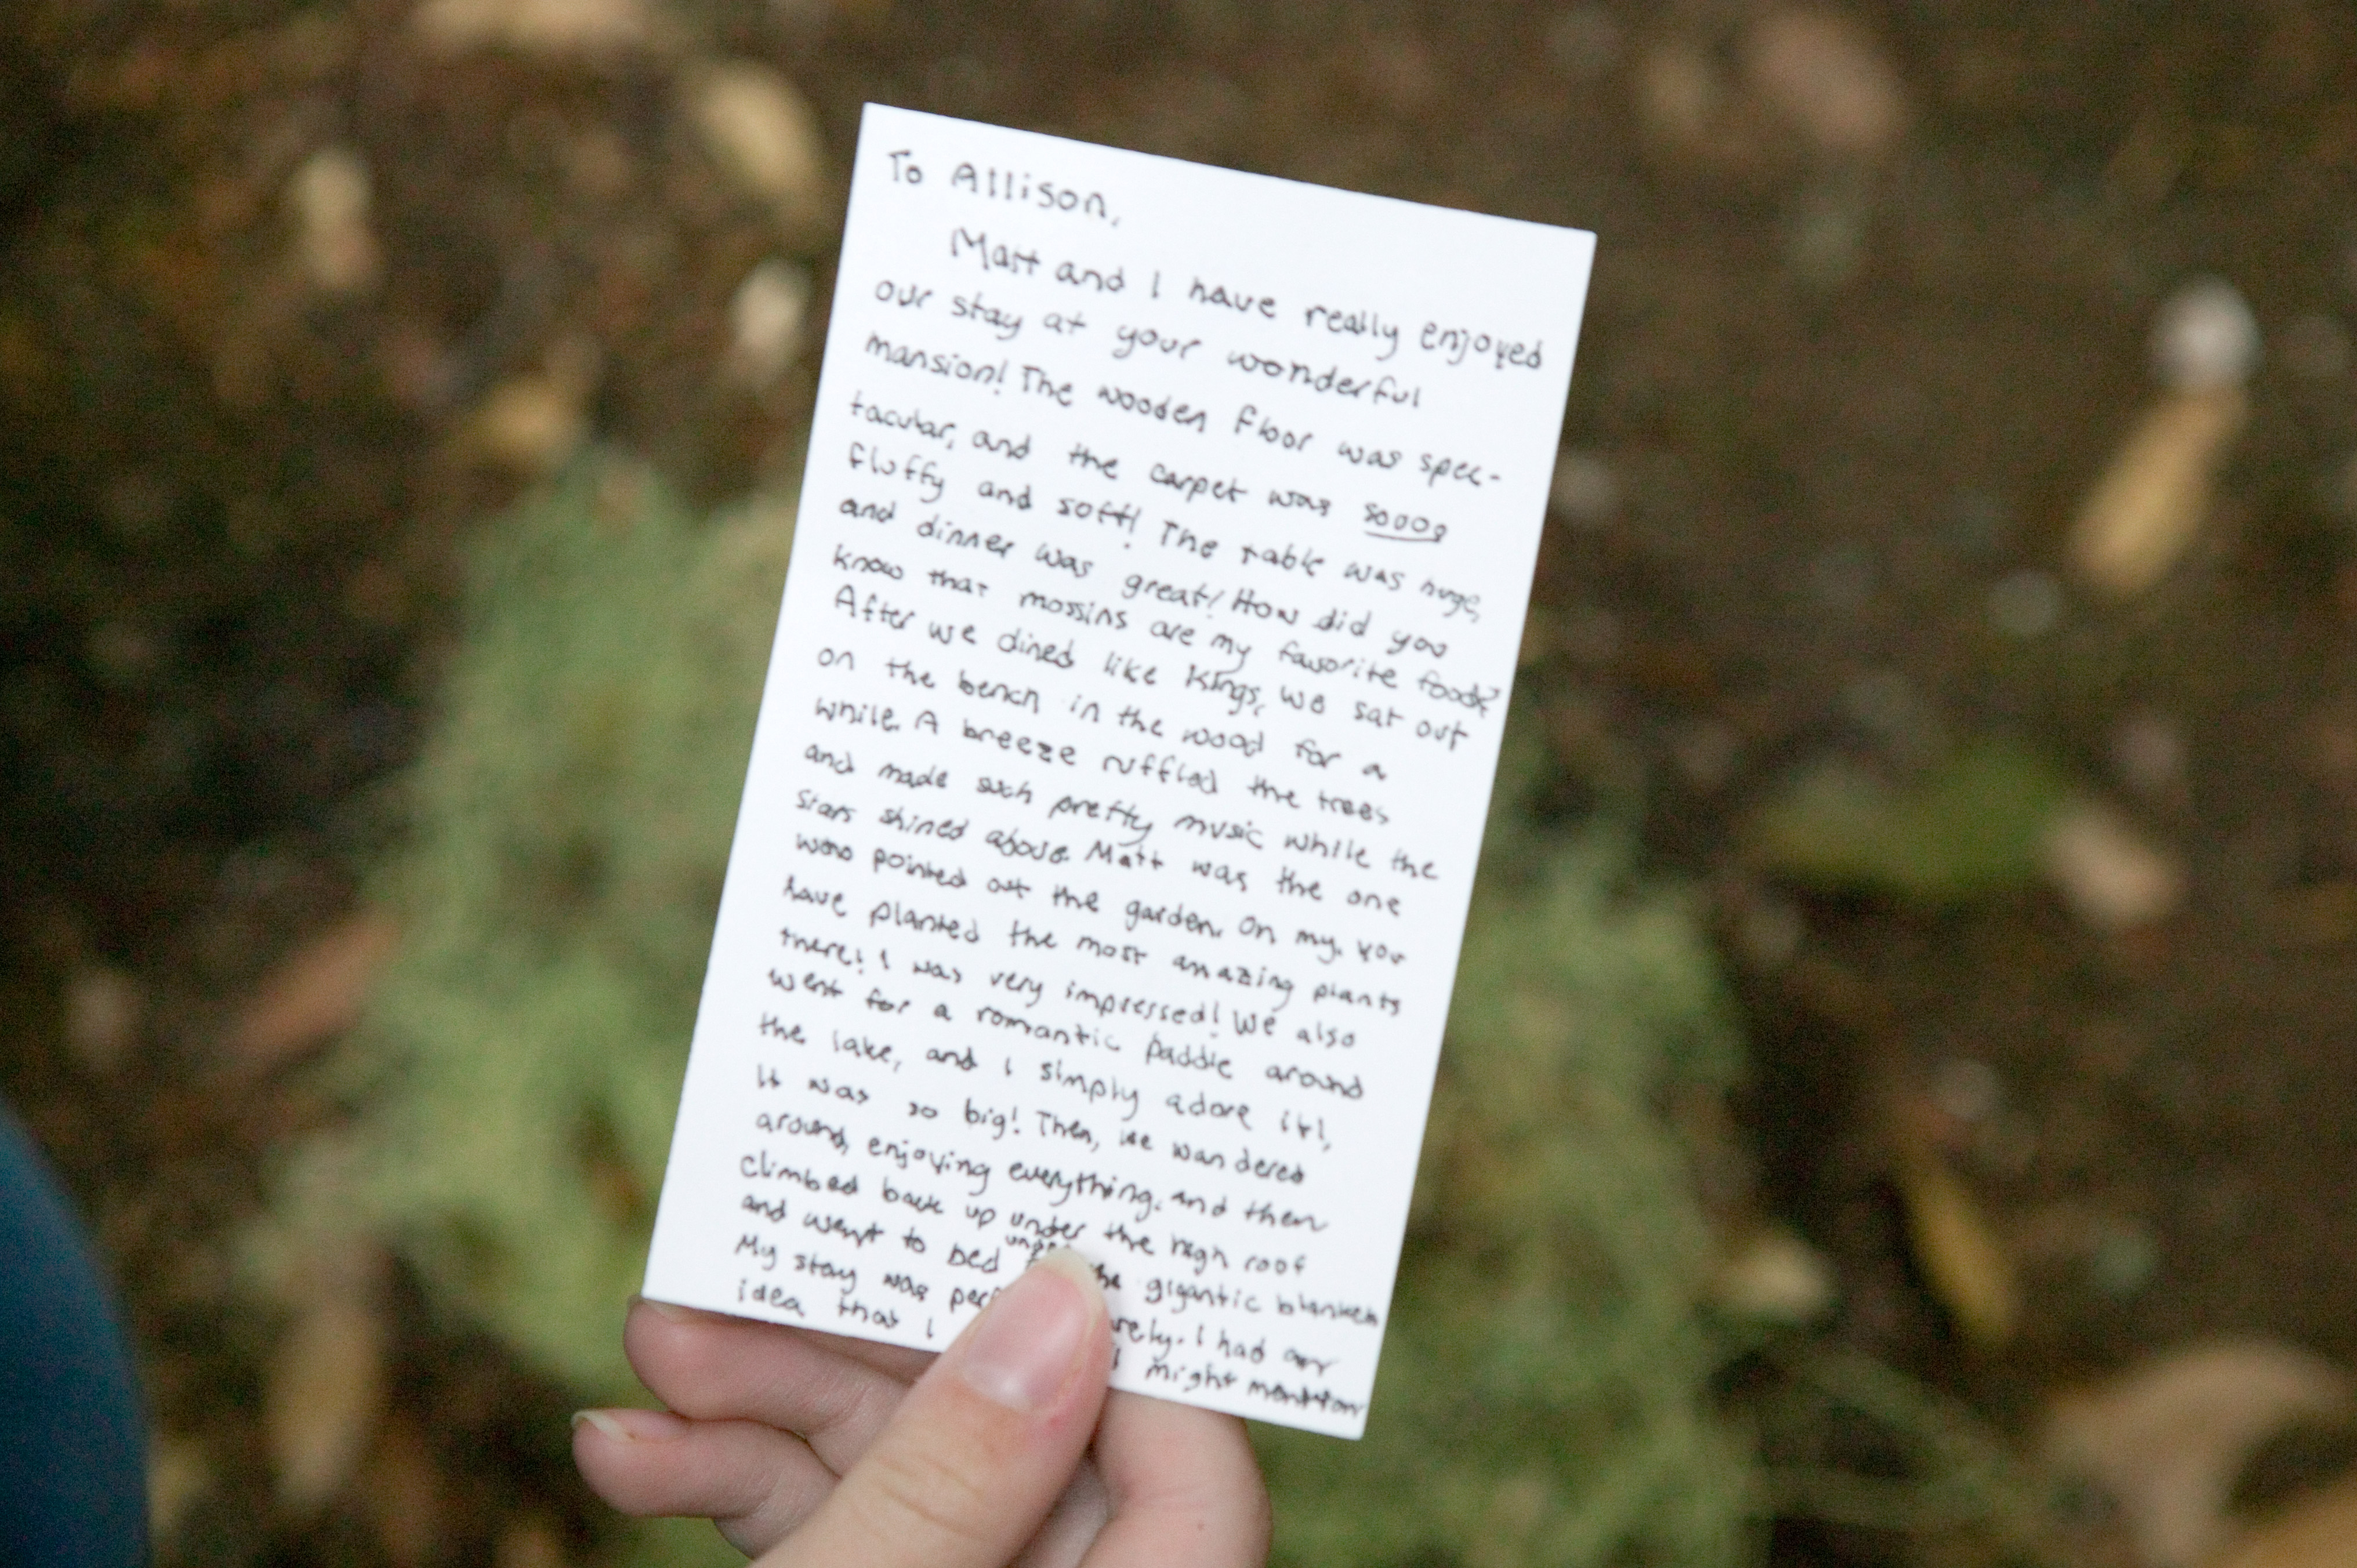 To Allison,
Matt and I have really enjoyed
our stay at your wonderful
mansion! The wooden floor was spec-
tacular, and the carpet was soooo
fluffy and soft! The table was huge,
and dinner was great! How did you
know that mossins are my favorite food?
After we dined like kings, we sat out
on the bench in the wood for a
while. A breeze ruffled the trees
and made such pretty music while the
stars shined above. Matt was the one
who pointed out the garden. Oh my. You
have planted the most amazing plants
there! I was very impressed! We also
went for a romantic paddle around
the lake, and I simply adore it!,
It was so big! Then, we wandered
around, enjoying everything, and then
climbed back up under the high roof
and went to bed under the gigantic blanket
My stay was I had
idea that I I might mention